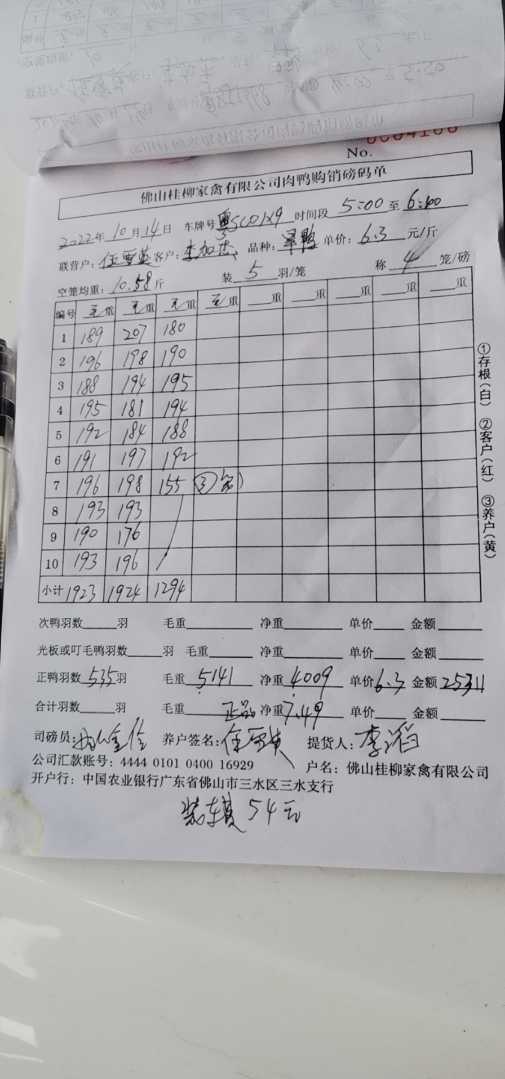 No.
佛山桂柳家禽有限公司肉鸭购销磅码单
2022年10月14日 车牌号 时间段5:00至6:00
联营户: 客户: 品种: 单价:6.3元/斤
空笼均重:10.58斤 装5羽/笼 称4笼/磅
编号 毛重 毛重 毛重 毛重 重 重 重 重
1 189 207 180
2 196 198 190
3 188 194 195
4 195 181 194
5 192 184 188
6 191 197 192
7 196 198 155
8 193 193
9 190 176
10 193 196
小计 1923 1924 1294
①存根(白) ②客户(红) ③养户(黄)
次鸭羽数 羽 毛重 净重 单价 金额
光板或叮毛鸭羽数 羽 毛重 净重 单价 金额
正鸭羽数535羽 毛重5141 净重4009 单价6.3 金额
合计羽数 羽 毛重 正品 净重7.49 单价 金额
司磅员: 养户签名: 提货人:李滔
公司汇款账号:4444 0101 0400 16929 户名:佛山桂柳家禽有限公司
开户行:中国农业银行广东省佛山市三水区三水支行
装车费54元